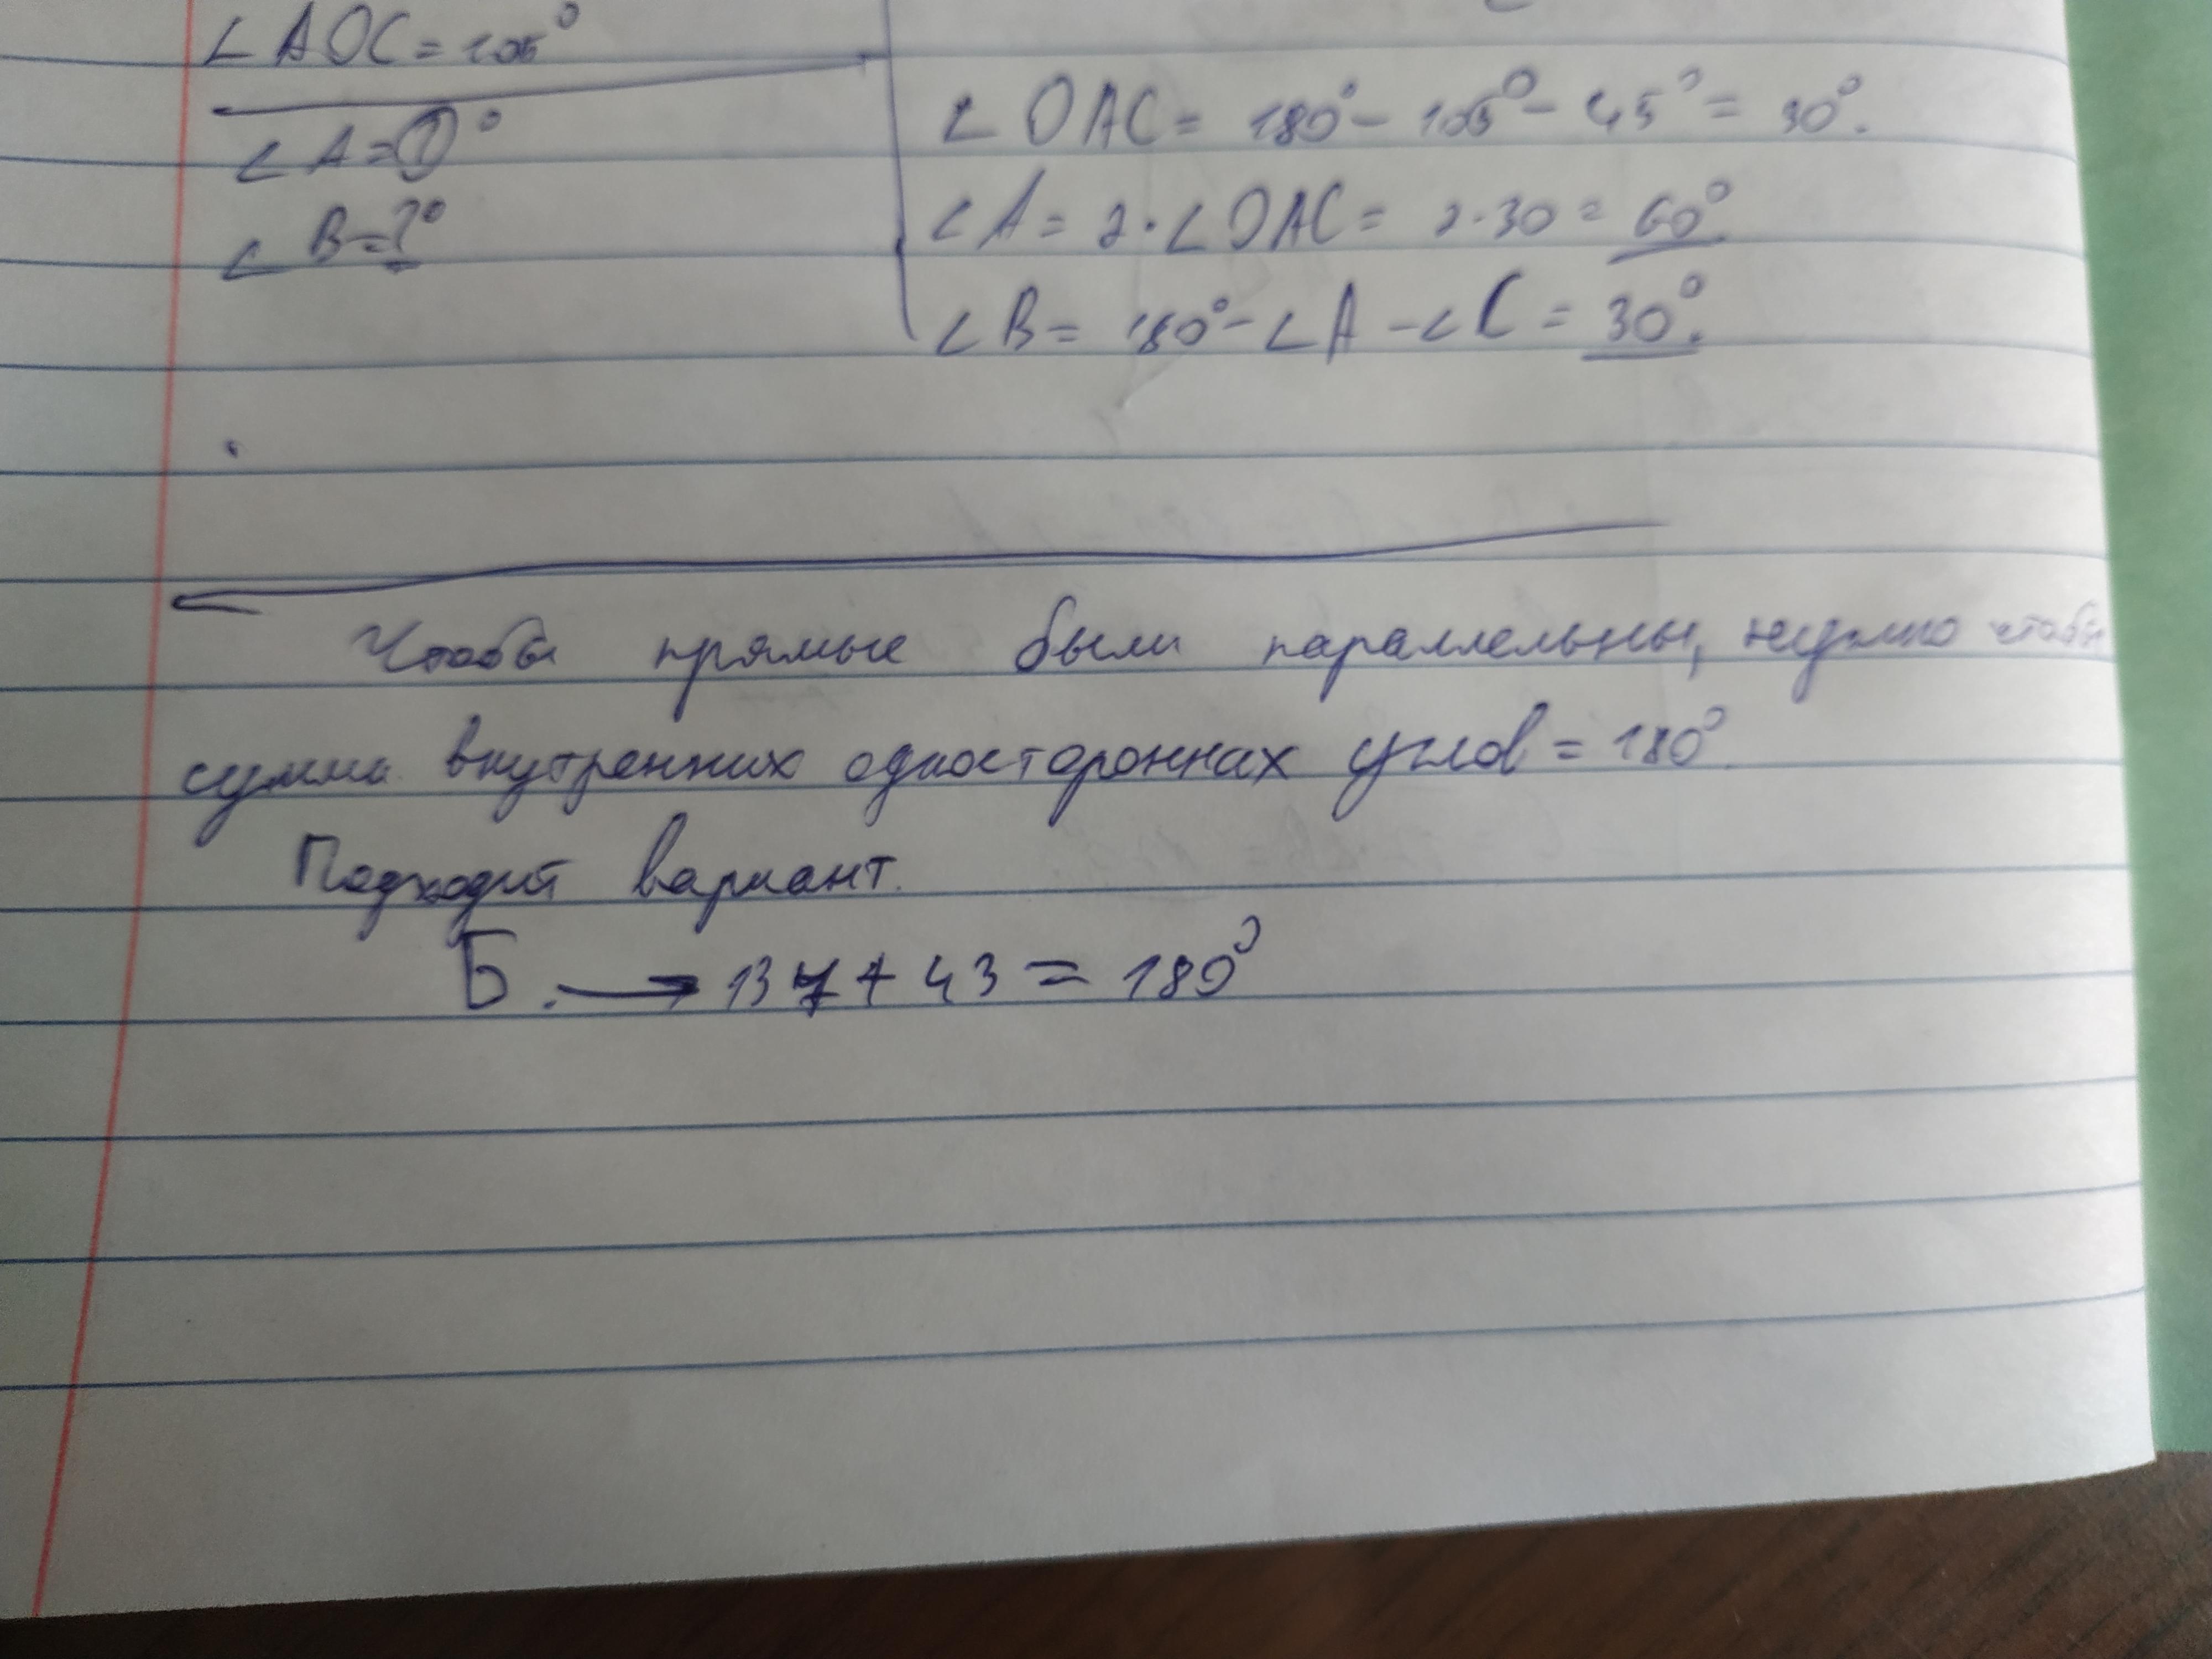 ∠AOC = 105°
∠A = ?°
∠B = ?°
∠OAC = 180° - 105° - 45° = 30°.
∠A = 2·∠OAC = 2·30 = 60°.
∠B = 180° - ∠A - ∠C = 30°.
Чтобы прямые были параллельны, нужно чтобы
сумма внутренних одностороннах углов = 180°.
Подходит вариант.
Б. → 137 + 43 = 180°